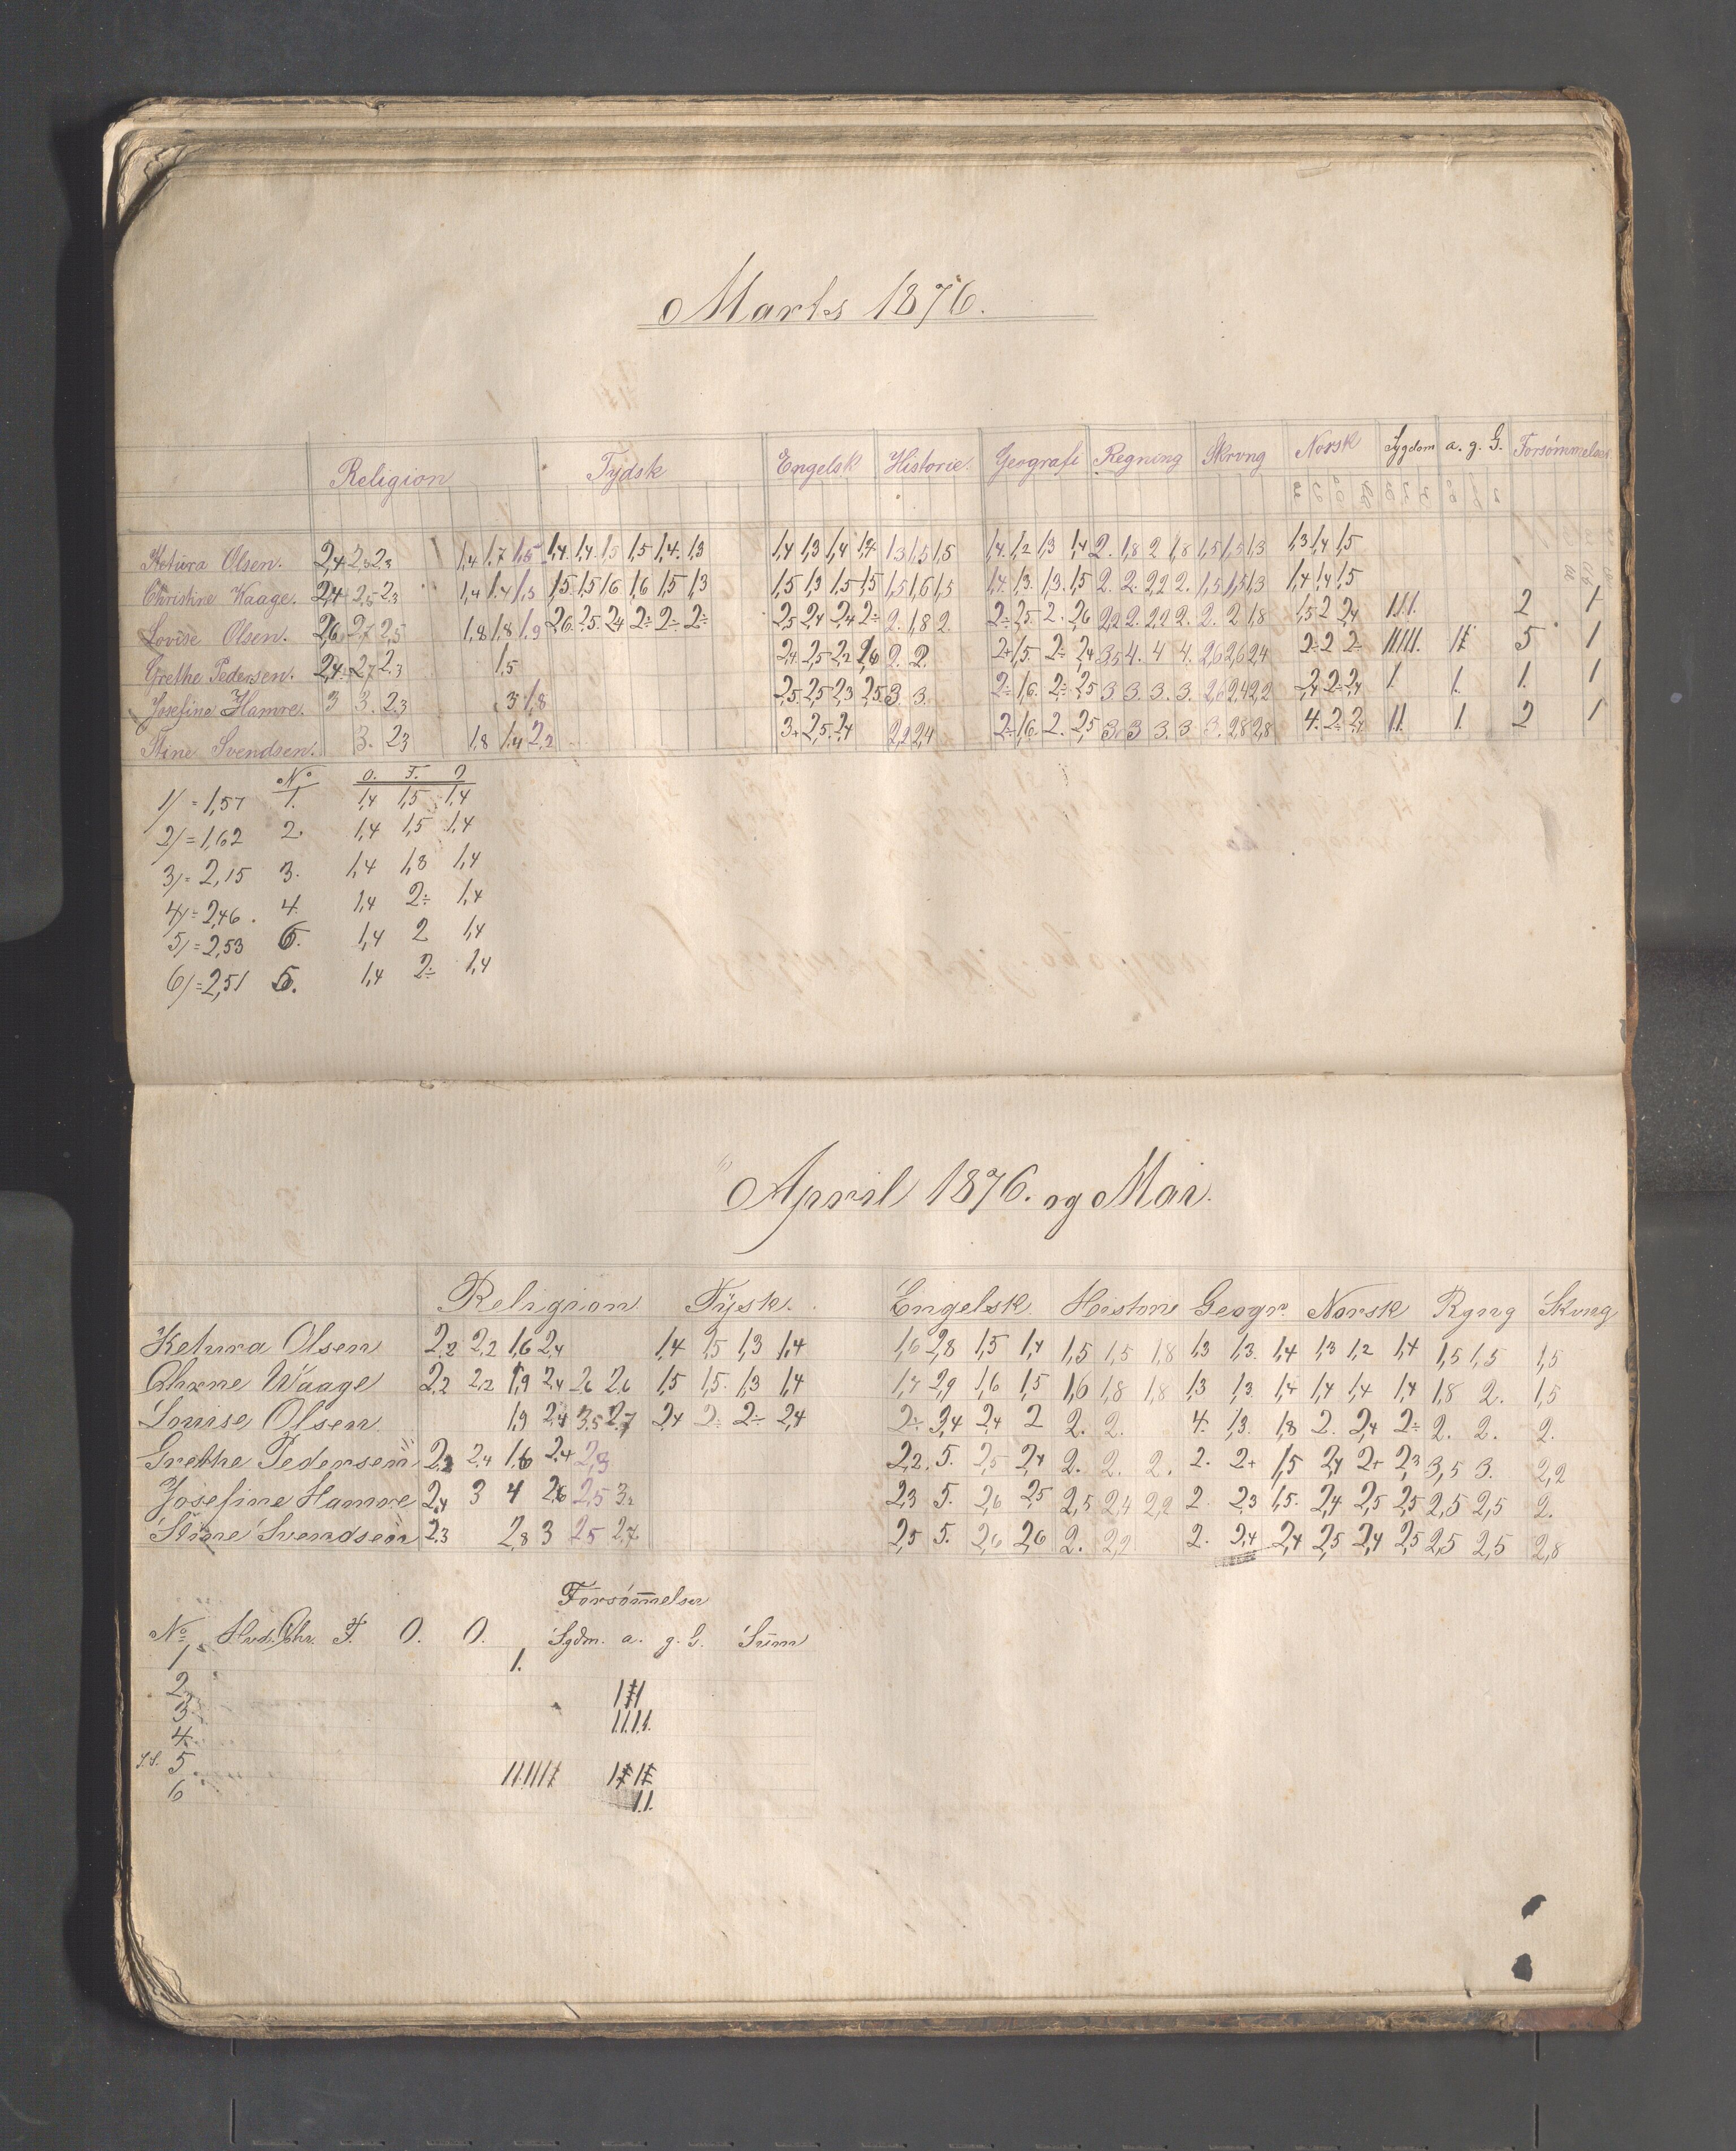 Marts 1876.
Religion Tydsk Engelsk Historie. Geografi Regning Skrvng Norsk Sygdom a. g. G. Forsömmelser
Ketura Olsen. 2,4 2,3 2,3 1,4 1,7 1,5 1,4. 1,4. 1,5 1,5 1,4. 1,3 1,4 1,3 1,4 1,4 1,3 1,5 1,5 1,4. 1,2 1,3 1,4 2. 1,8 2 1,8 1,5 1,5 1,3 1,3 1,4 1,5
Christine Waage. 2,4 2,5 2,3 1,4 1,4 1,3 1,5 1,5 1,6 1,6 1,5 1,3 1,5 1,3 1,5 1,5 1,5 1,6 1,5 1,4. 1,3. 1,3. 1,5 2. 2. 2,2 2. 1,5 1,5 1,3 1,4 1,4 1,5
Lovise Olsen. 2,6 2,7 2,5 1,8 1,8 1,9 2,6. 2,5. 2,4 2÷ 2÷ 2÷ 2,5 2,4 2,4 2÷ 2. 1,8 2. 2÷ 2,5. 2. 2,6 2,2 2. 2,2 2. 2. 2 1,8 1,5 2 2,4 111. 2 1
Grethe Pedersen. 2,4. 2,7 2,3 1,5 2,4. 2,5 2,2 2,6 2. 2. 2+ 1,5. 2÷ 2,4 3,5 4. 4 4. 2,6 2,6 2,4 2÷ 2 2÷ 11111. 5 1
Josefine Hamre. 3 3. 2,3 3 1,8 2,5 2,5 2,3 2,5 3 3. 2÷ 1,6. 2÷ 2,5 3 3. 3. 3. 2,6 2,4 2,2 2,4 2÷ 2,4 1. 1. 1. 1
Stine Svendsen. 3. 2,3 1,8 1,4 2,2 3+ 2,5. 2,4 2,2 2,4 2÷ 1,6. 2. 2,5 3. 3 3. 3 3. 2,8 2,8 4. 2÷ 2,4 11. 1. 2 1
No o. F. O
1) = 1,57 1. 1,4 1,5 1,4
2) = 1,62 2. 1,4 1,5 1,4
3) = 2,15 3. 1,4 1,8 1,4
4) = 2,46. 4. 1,4 2÷ 1,4
5) = 2,53 6. 1,4 2 1,4
6) = 2,51 5. 1,4 2÷ 1,4
April 1876. og Mai.
Religion Tysk. Engelsk Historie Geogr. Norsk Rgng Skvng
Ketura Olsen 2,2 2,2 1,6 2,4 1,4 1,5 1,3 1,4 1,6 2,8 1,5 1,4 1,5 1,5 1,8 1,3 1,3. 1,4 1,3 1,2 1,4 1,5 1,5 1,5
Chrxne Waage 2,2 2,2 1,9 2,4 2,6 2,6 1,5 1,5. 1,3 1,4 1,7 2,9 1,6 1,5 1,6 1,8 1,8 1,3 1,3. 1,4 1,4 1,4 1,4 1,8 2. 1,5
Louise Olsen 1,9 2,4 3,5 2,7 2,4 2÷ 2÷ 2,4 2÷ 3,4 2,4 2 2. 2. 4. 1,3. 1,8 2. 2,4 2÷ 2. 2. 2.
Grethe Pedersen 2,2 2,4 1,6 2,4 2,3 2,2. 5. 2,5 2,4 2. 2. 2. 2. 2+ 1,5 2,4 2+ 2,3 3,5 3. 2,2
Josefine Hamre 2,4 3 4 2,6 2,5 3÷ 2,3 5. 2,6 2,5 2,5 2,4 2,2 2. 2,3 1,5. 2,4 2,5 2,5 2,5 2,5 2.
Stine Svendsen 2,3 2,8 3 2,5 2,7 2,5 5. 2,6 2,6 2. 2,2 2. 2,4 2,4 2,5 2,4 2,5 2,5 2,5 2,8
Forsöm̅elser
No Hvd. Chr. F. O. O. Sgdm. a. g. G. Sum
1 1.
2.
3. 11.11.
4.
5.
6 11.